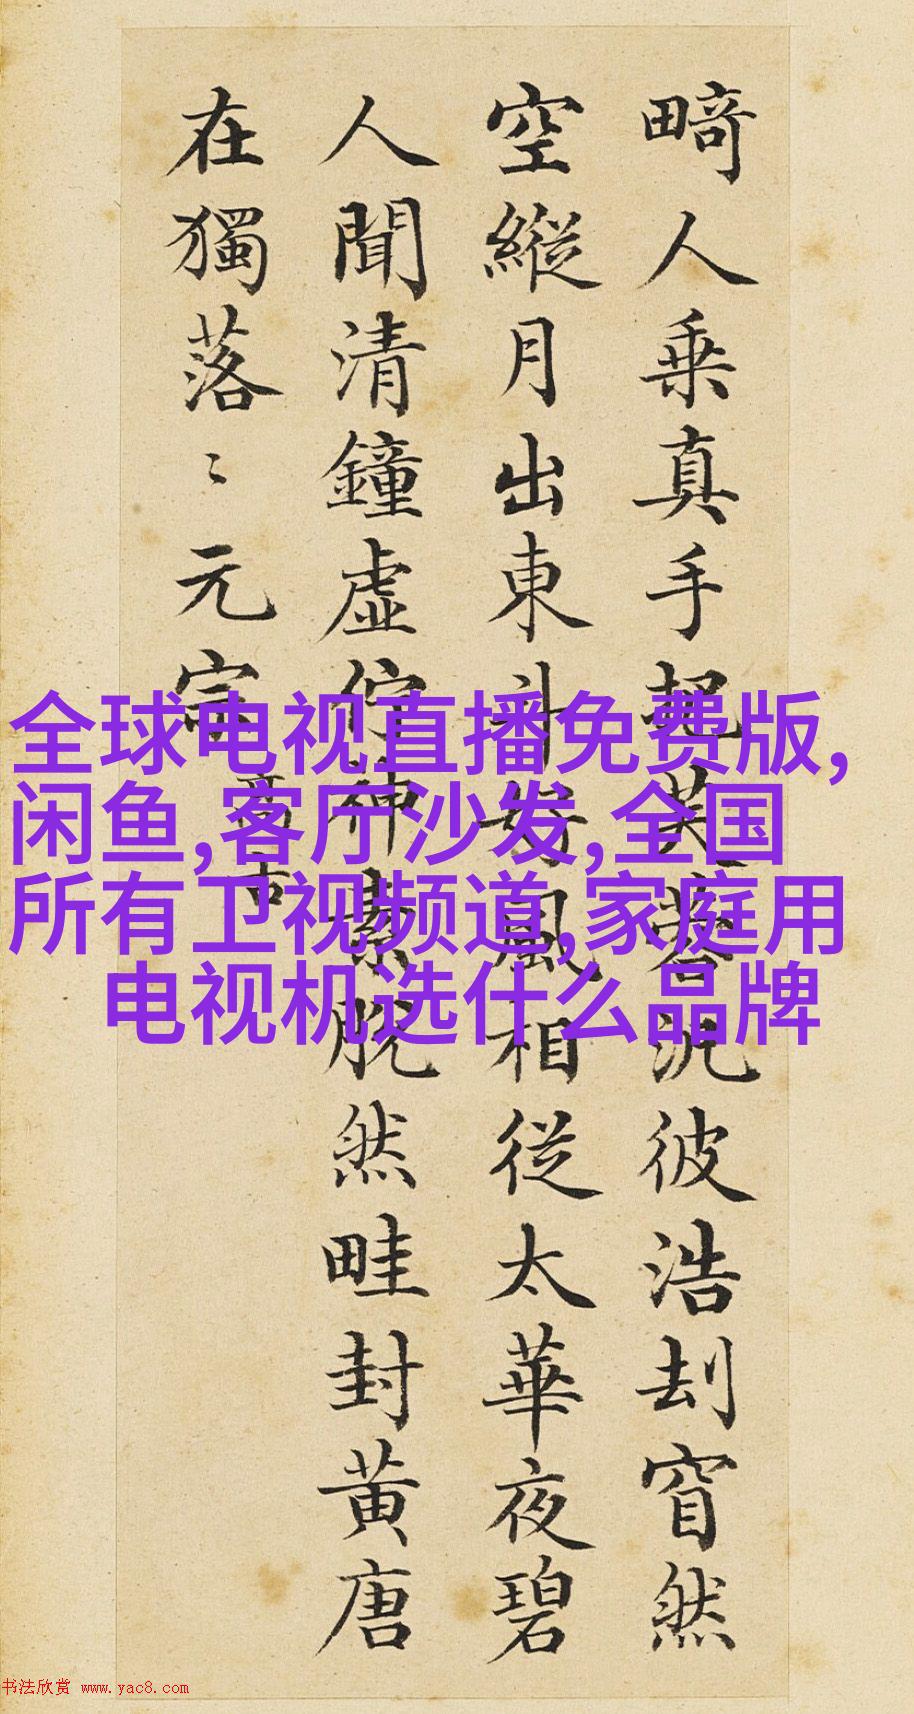 畸人乗真手把芙蓉汎彼浩刦窅然
空縱月出東斗好風相從太華夜碧
人聞清鐘虛佇神素脫然畦封黃唐
在獨落〻元宗
高古
全球电视直播免费版,
闲鱼,客厅沙发,全国
所有卫视频道,家庭用
电视机选什么品牌
书法欣赏 www.yac8.com